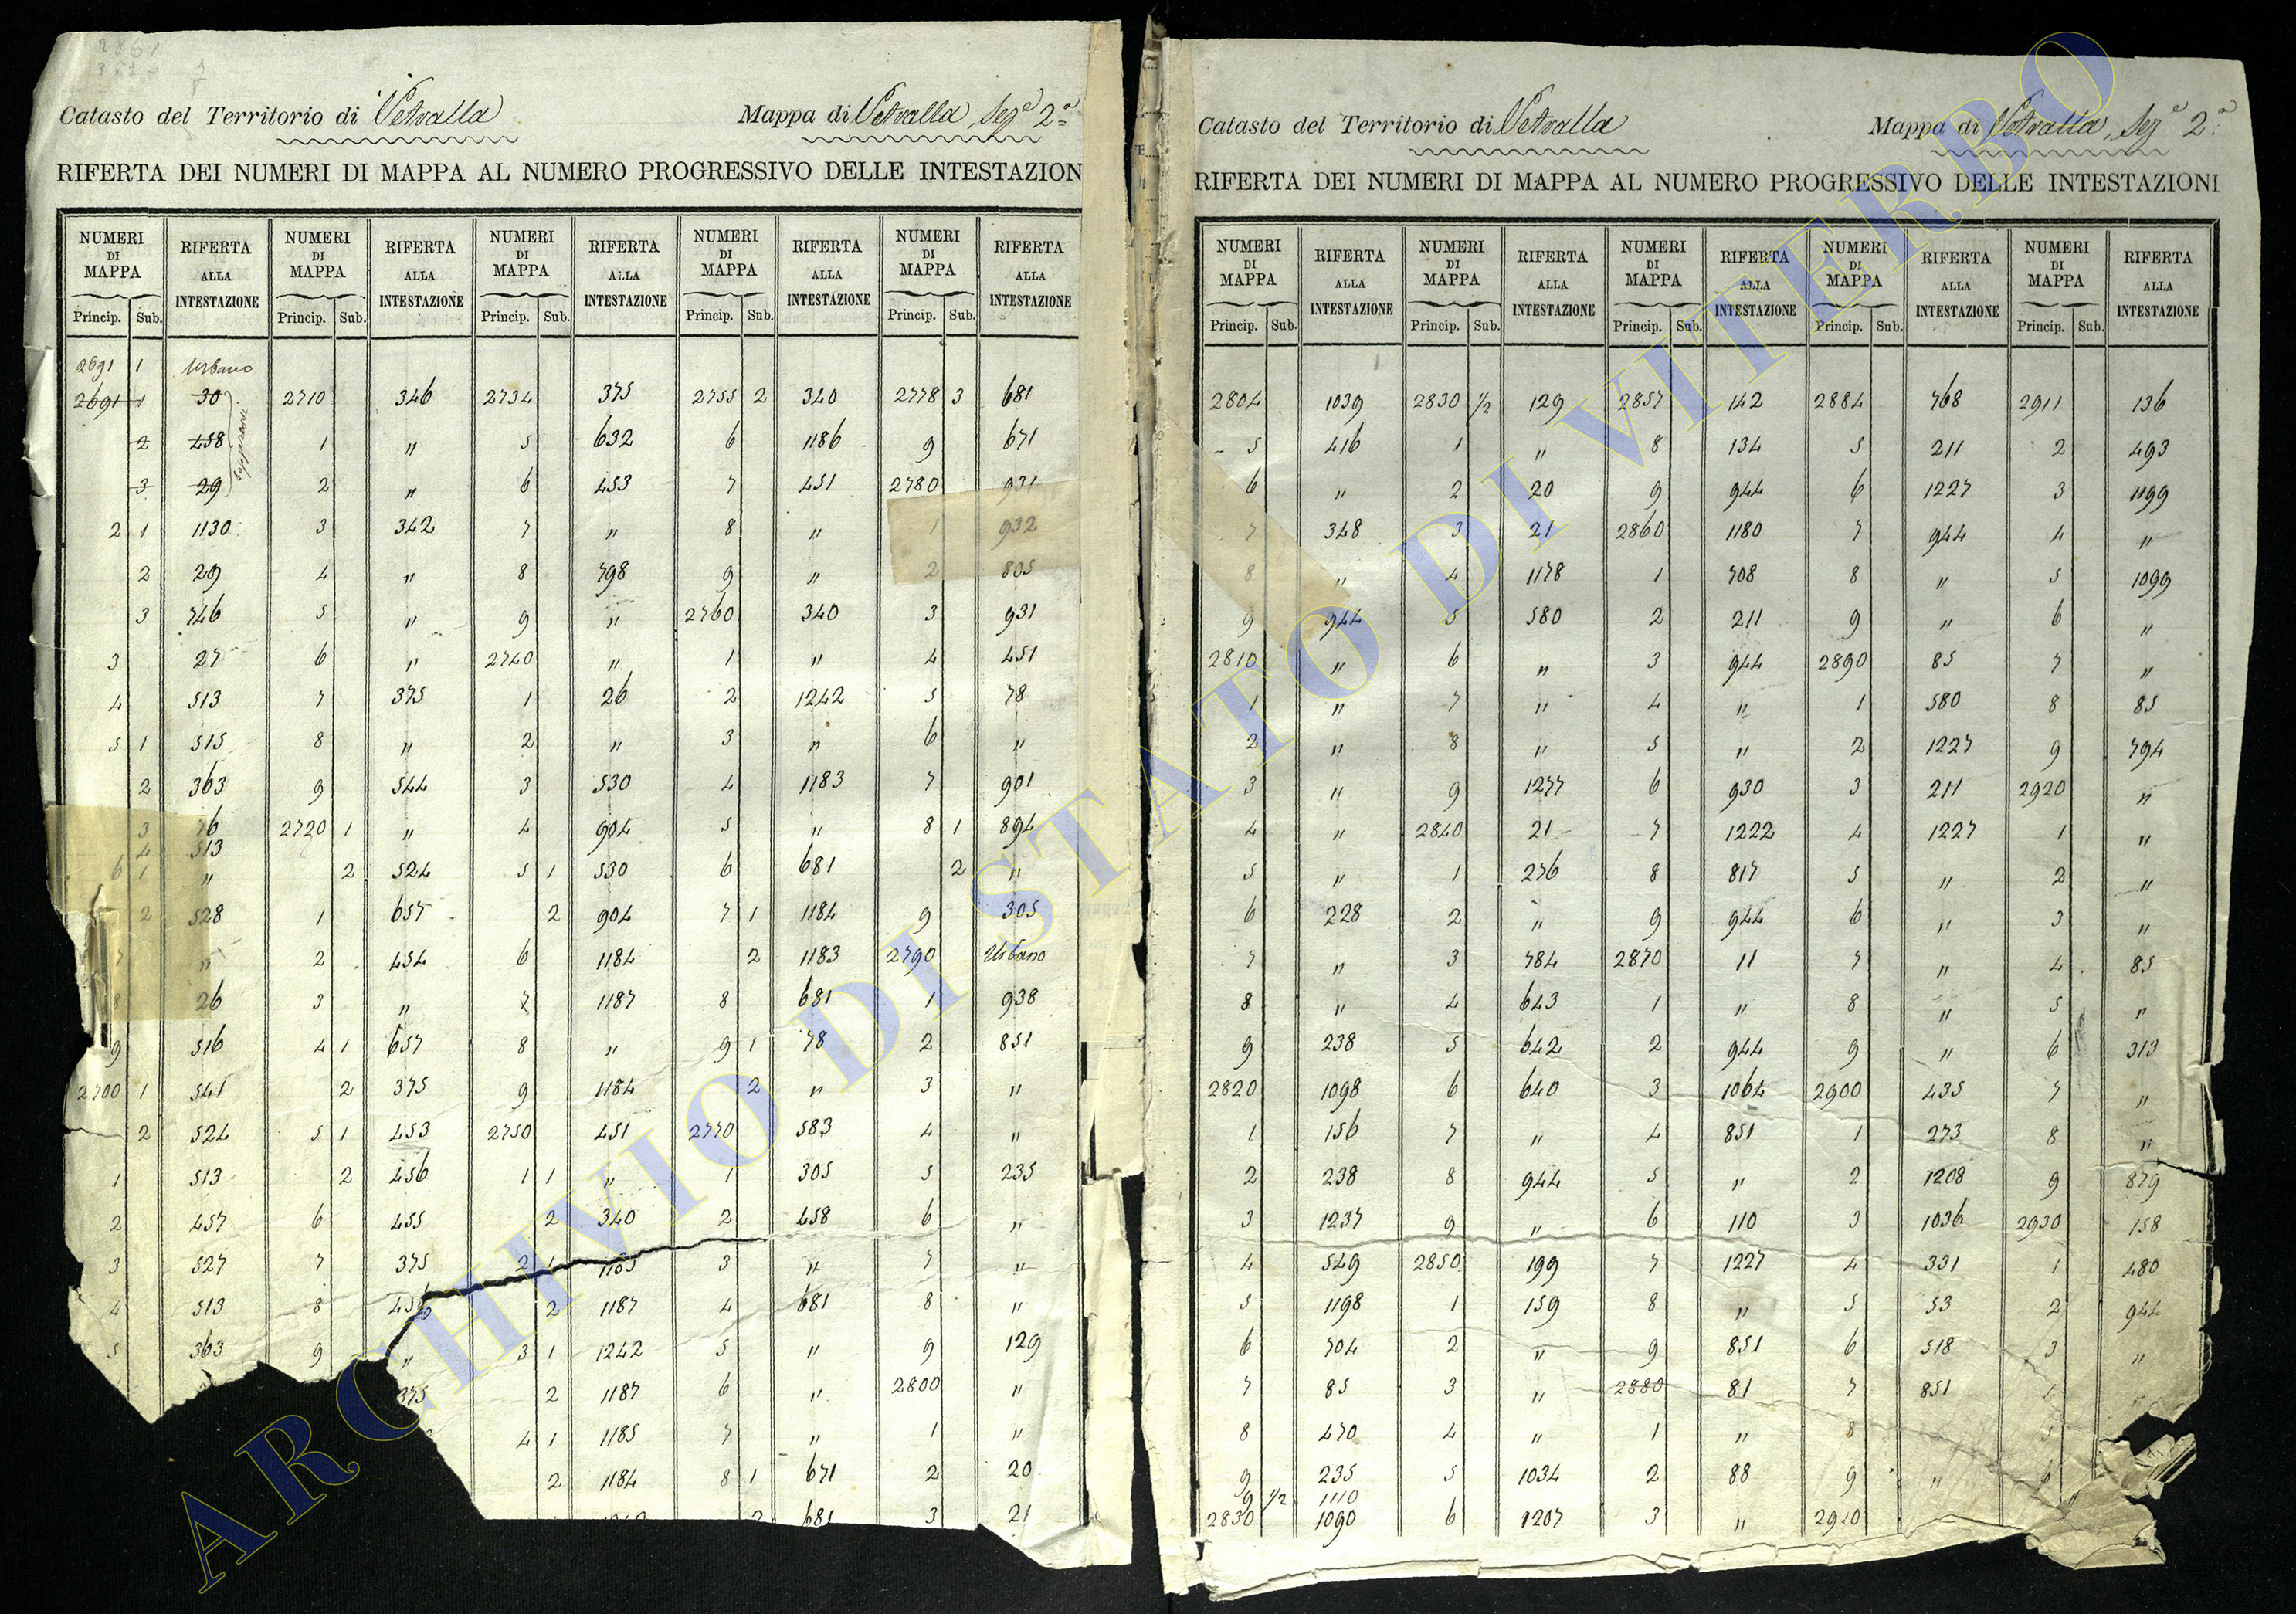 Catasto del Territorio di Vetralla Mappa di Vetralla Sez.e 2a
RIFERTA DEI NUMERI DI MAPPA AL NUMERO PROGRESSIVO DELLE INTESTAZION
NUMERI DI MAPPA RIFERTA ALLA INTESTAZIONE NUMERI DI MAPPA RIFERTA ALLA INTESTAZIONE NUMERI DI MAPPA RIFERTA ALLA INTESTAZIONE NUMERI DI MAPPA RIFERTA ALLA INTESTAZIONE NUMERI DI MAPPA RIFERTA ALLA INTESTAZIONE
Princip. Sub. Princip. Sub. Princip. Sub. Princip. Sub. Princip. Sub.
2691 1 Urbano
2691 1 30 2710 346 2734 375 2755 2 340 2778 3 681
2 458 1 " 5 632 6 1186 9 671
3 29 2 " 6 453 7 451 2780 931
2 1 1130 3 342 7 " 8 " 1 932
2 29 4 " 8 798 9 " 2 805
3 746 5 " 9 " 2760 340 3 931
3 27 6 " 2740 " 1 " 4 451
4 513 7 375 1 26 2 1242 5 78
5 1 515 8 " 2 " 3 " 6 "
2 363 9 544 3 530 4 1183 7 901
3 76 2720 1 " 4 904 5 " 8 1 894
4 513
6 1 " 2 524 5 1 530 6 681 2 "
2 528 1 657 2 904 7 1 1184 9 305
7 " 2 454 6 1184 2 1183 2790 Urbano
8 26 3 " 7 1187 8 681 1 938
9 516 4 1 657 8 " 9 1 78 2 851
2700 1 541 2 375 9 1184 2 " 3 "
2 524 5 1 453 2750 451 2770 583 4 "
1 513 2 456 1 1 " 1 305 5 235
2 457 6 455 2 340 2 458 6 "
3 527 7 375 2 1 1185 3 " 7 "
4 513 8 2 1187 4 681 8 "
5 363 9 " 3 1 1242 5 " 9 129
375 2 1187 6 " 2800 "
4 1 1185 7 " 1 "
2 1184 8 1 671 2 20
2 681 3 21
Catasto del Territorio di Vetralla Mappa di Vetralla, Sez.e 2.a
RIFERTA DEI NUMERI DI MAPPA AL NUMERO PROGRESSIVO DELLE INTESTAZIONI
NUMERI DI MAPPA RIFERTA ALLA INTESTAZIONE NUMERI DI MAPPA RIFERTA ALLA INTESTAZIONE NUMERI DI MAPPA RIFERTA ALLA INTESTAZIONE NUMERI DI MAPPA RIFERTA ALLA INTESTAZIONE NUMERI DI MAPPA RIFERTA ALLA INTESTAZIONE
Princip. Sub. Princip. Sub. Princip. Sub. Princip. Sub. Princip. Sub.
2804 1039 2830 1/2 129 2857 142 2884 768 2911 136
5 416 1 " 8 134 5 211 2 493
6 " 2 20 9 944 6 1227 3 1199
7 348 3 21 2860 1180 7 944 4 "
8 " 4 1178 1 708 8 " 5 1099
9 944 5 580 2 211 9 " 6 "
2810 " 6 " 3 944 2890 85 7 "
1 " 7 " 4 " 1 580 8 85
2 " 8 " 5 " 2 1227 9 794
3 " 9 1277 6 930 3 211 2920 "
4 " 2840 21 7 1222 4 1227 1 "
5 " 1 276 8 817 5 " 2 "
6 228 2 " 9 944 6 " 3 "
7 " 3 784 2870 11 7 " 4 85
8 " 4 643 1 " 8 " 5 "
9 238 5 642 2 944 9 " 6 313
2820 1098 6 640 3 1064 2900 435 7 "
1 156 7 " 4 851 1 273 8 "
2 238 8 944 5 " 2 1208 9 879
3 1237 9 " 6 110 3 1036 2930 158
4 549 2850 199 7 1227 4 331 1 480
5 1198 1 159 8 " 5 53 2 944
6 704 2 " 9 851 6 518 3 "
7 85 3 " 2880 81 7 851
8 470 4 " 1 " 8 5
9 235 5 1034 2 88 9 " 6
9 1/2 1110
2830 1090 6 1207 3 " 2910
ARCHIVIO DI STATO DI VITERBO